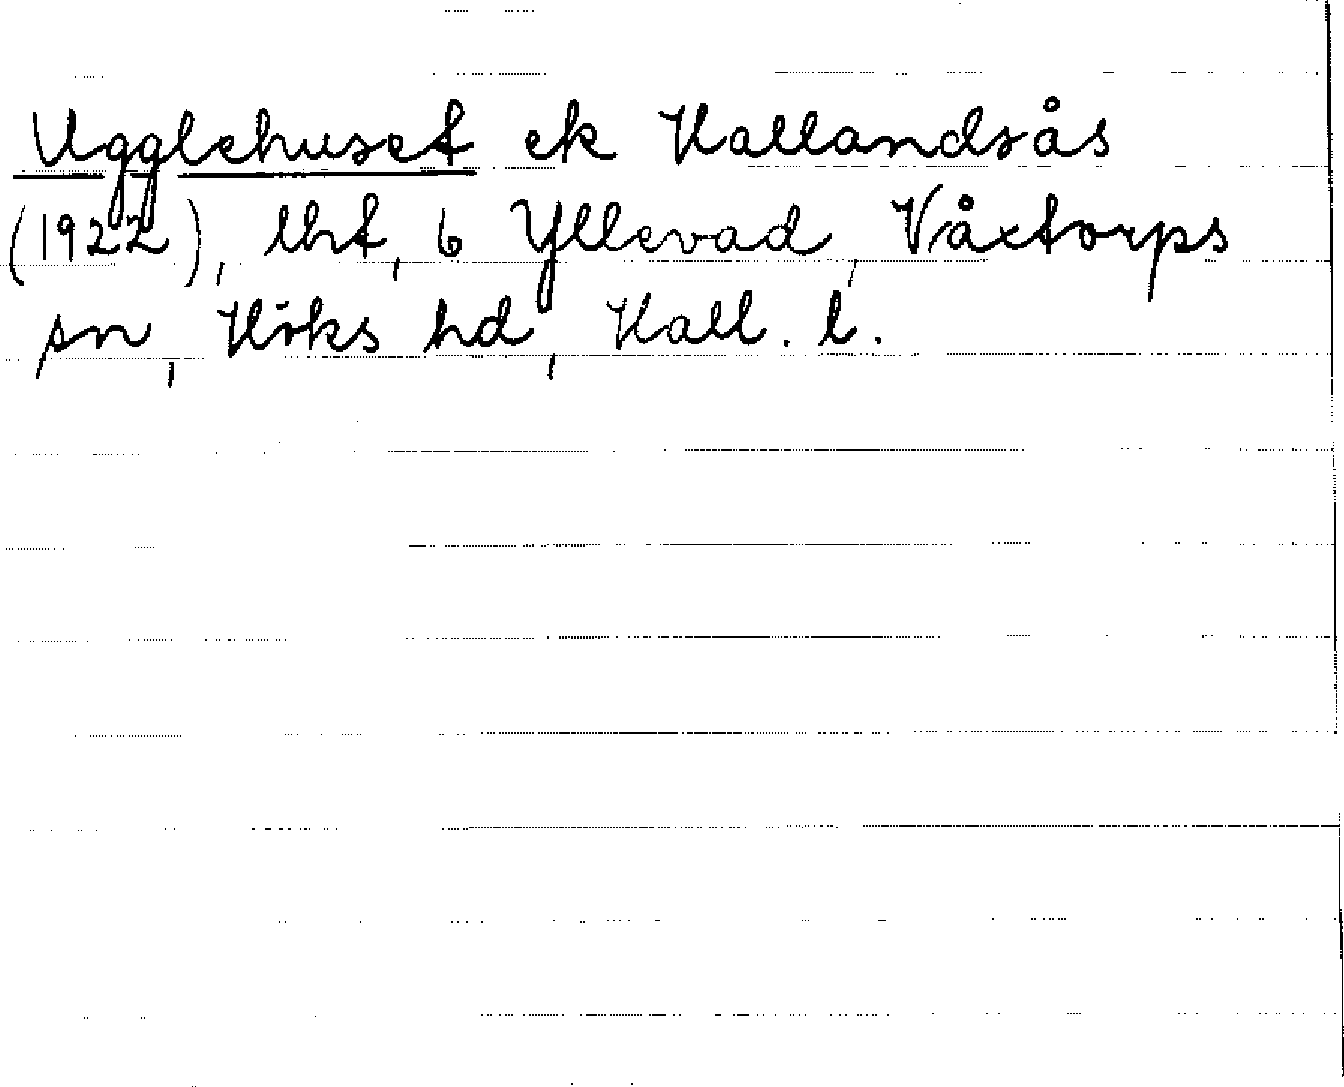 Ugglehuset ek Hallandsås
(1922), lht, b Yllevad, Våxtorps
sn, Höks hd, Hall. l.